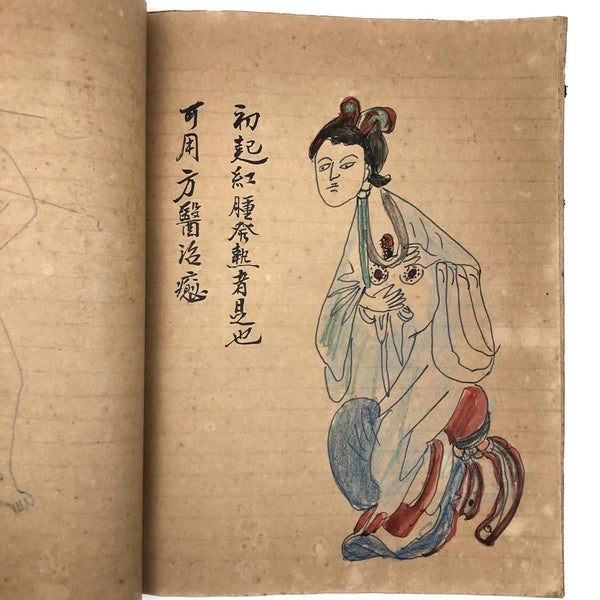 初起紅腫發熱者是也
可用方醫治癒